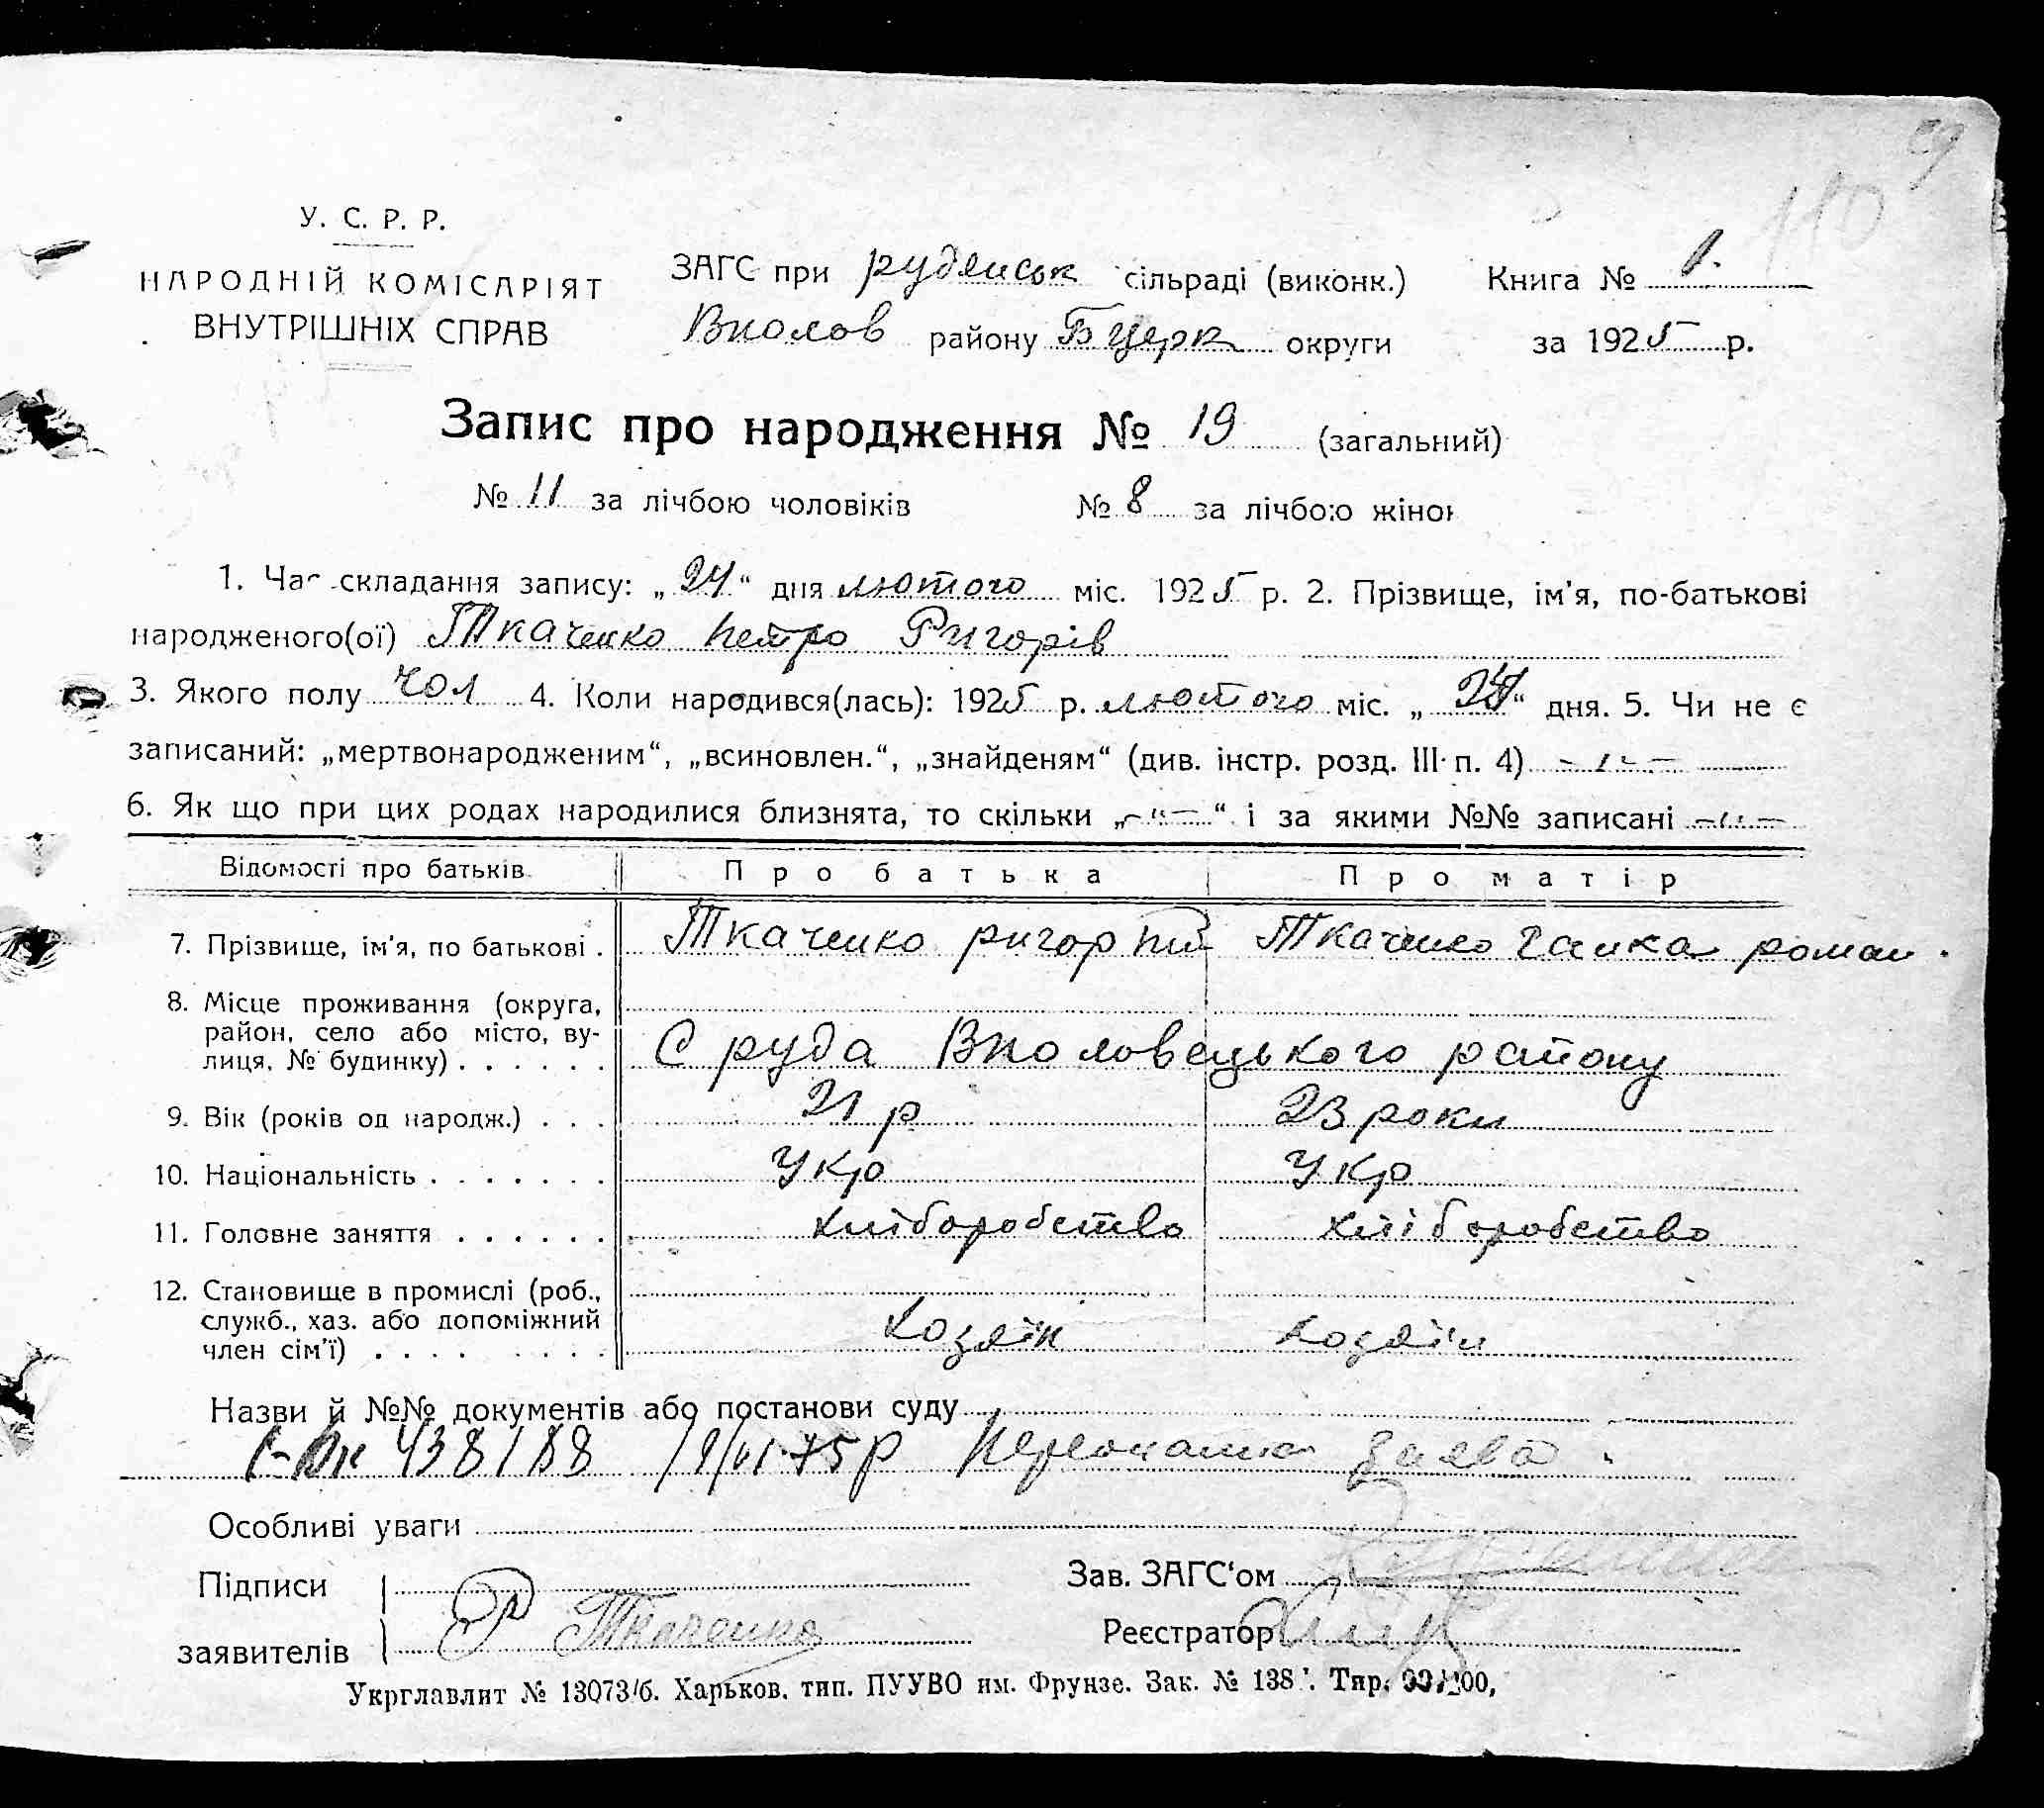 110
У. С. Р. Р.
НАРОДНІЙ КОМІСАРІЯТ
ВНУТРІШНІХ СПРАВ
ЗАГС при рудянськ сільраді (виконк.)
Вполов району Бцерк округи
Книга № 1.
за 1925 р.
Запис про народження № 19 (загальний)
№ 11 за лічбою чоловіків № 8 за лічбою жінок
1. Час складання запису: „24“ дня лютого міс. 1925 р. 2. Прізвище, ім’я, по-батькові
народженого(ої) Ткаченко Петро Ригорів
3. Якого полу чол 4. Коли народився(лась): 1925 р. лютого міс. „24“ дня. 5. Чи не є
записаний: „мертвонародженим“, „всиновлен.“, „знайденям“ (див. інстр. розд. III п. 4) –"–
6. Як що при цих родах народилися близнята, то скільки „–"–“ і за якими №№ записані –"–
Відомості про батьків Про батька Про матір
7. Прізвище, ім’я, по батькові . Ткаченко ригор Ткаченко Ганка роман.
8. Місце проживання (округа,
район, село або місто, ву-
лиця, № будинку) . . . . . . С руда Вполовецького району
9. Вік (років од народж.) . . . 21 р 23 роки
10. Національність . . . . . . . Укр Укр
11. Головне заняття . . . . . . хліборобство хліборобство
12. Становище в промислі (роб.,
служб., хаз. або допоміжний
член сім’ї) . . . . . . . . Хозяїн хозяїн
Назви й №№ документів або постанови суду
438188 75р заява
Особливі уваги
Підписи
заявителів Ткаченко
Зав. ЗАГС‘ом
Реєстратор
Укрглавлит № 13073/б. Харьков. тип. ПУУВО им. Фрунзе. Зак. № 138 . Тир.